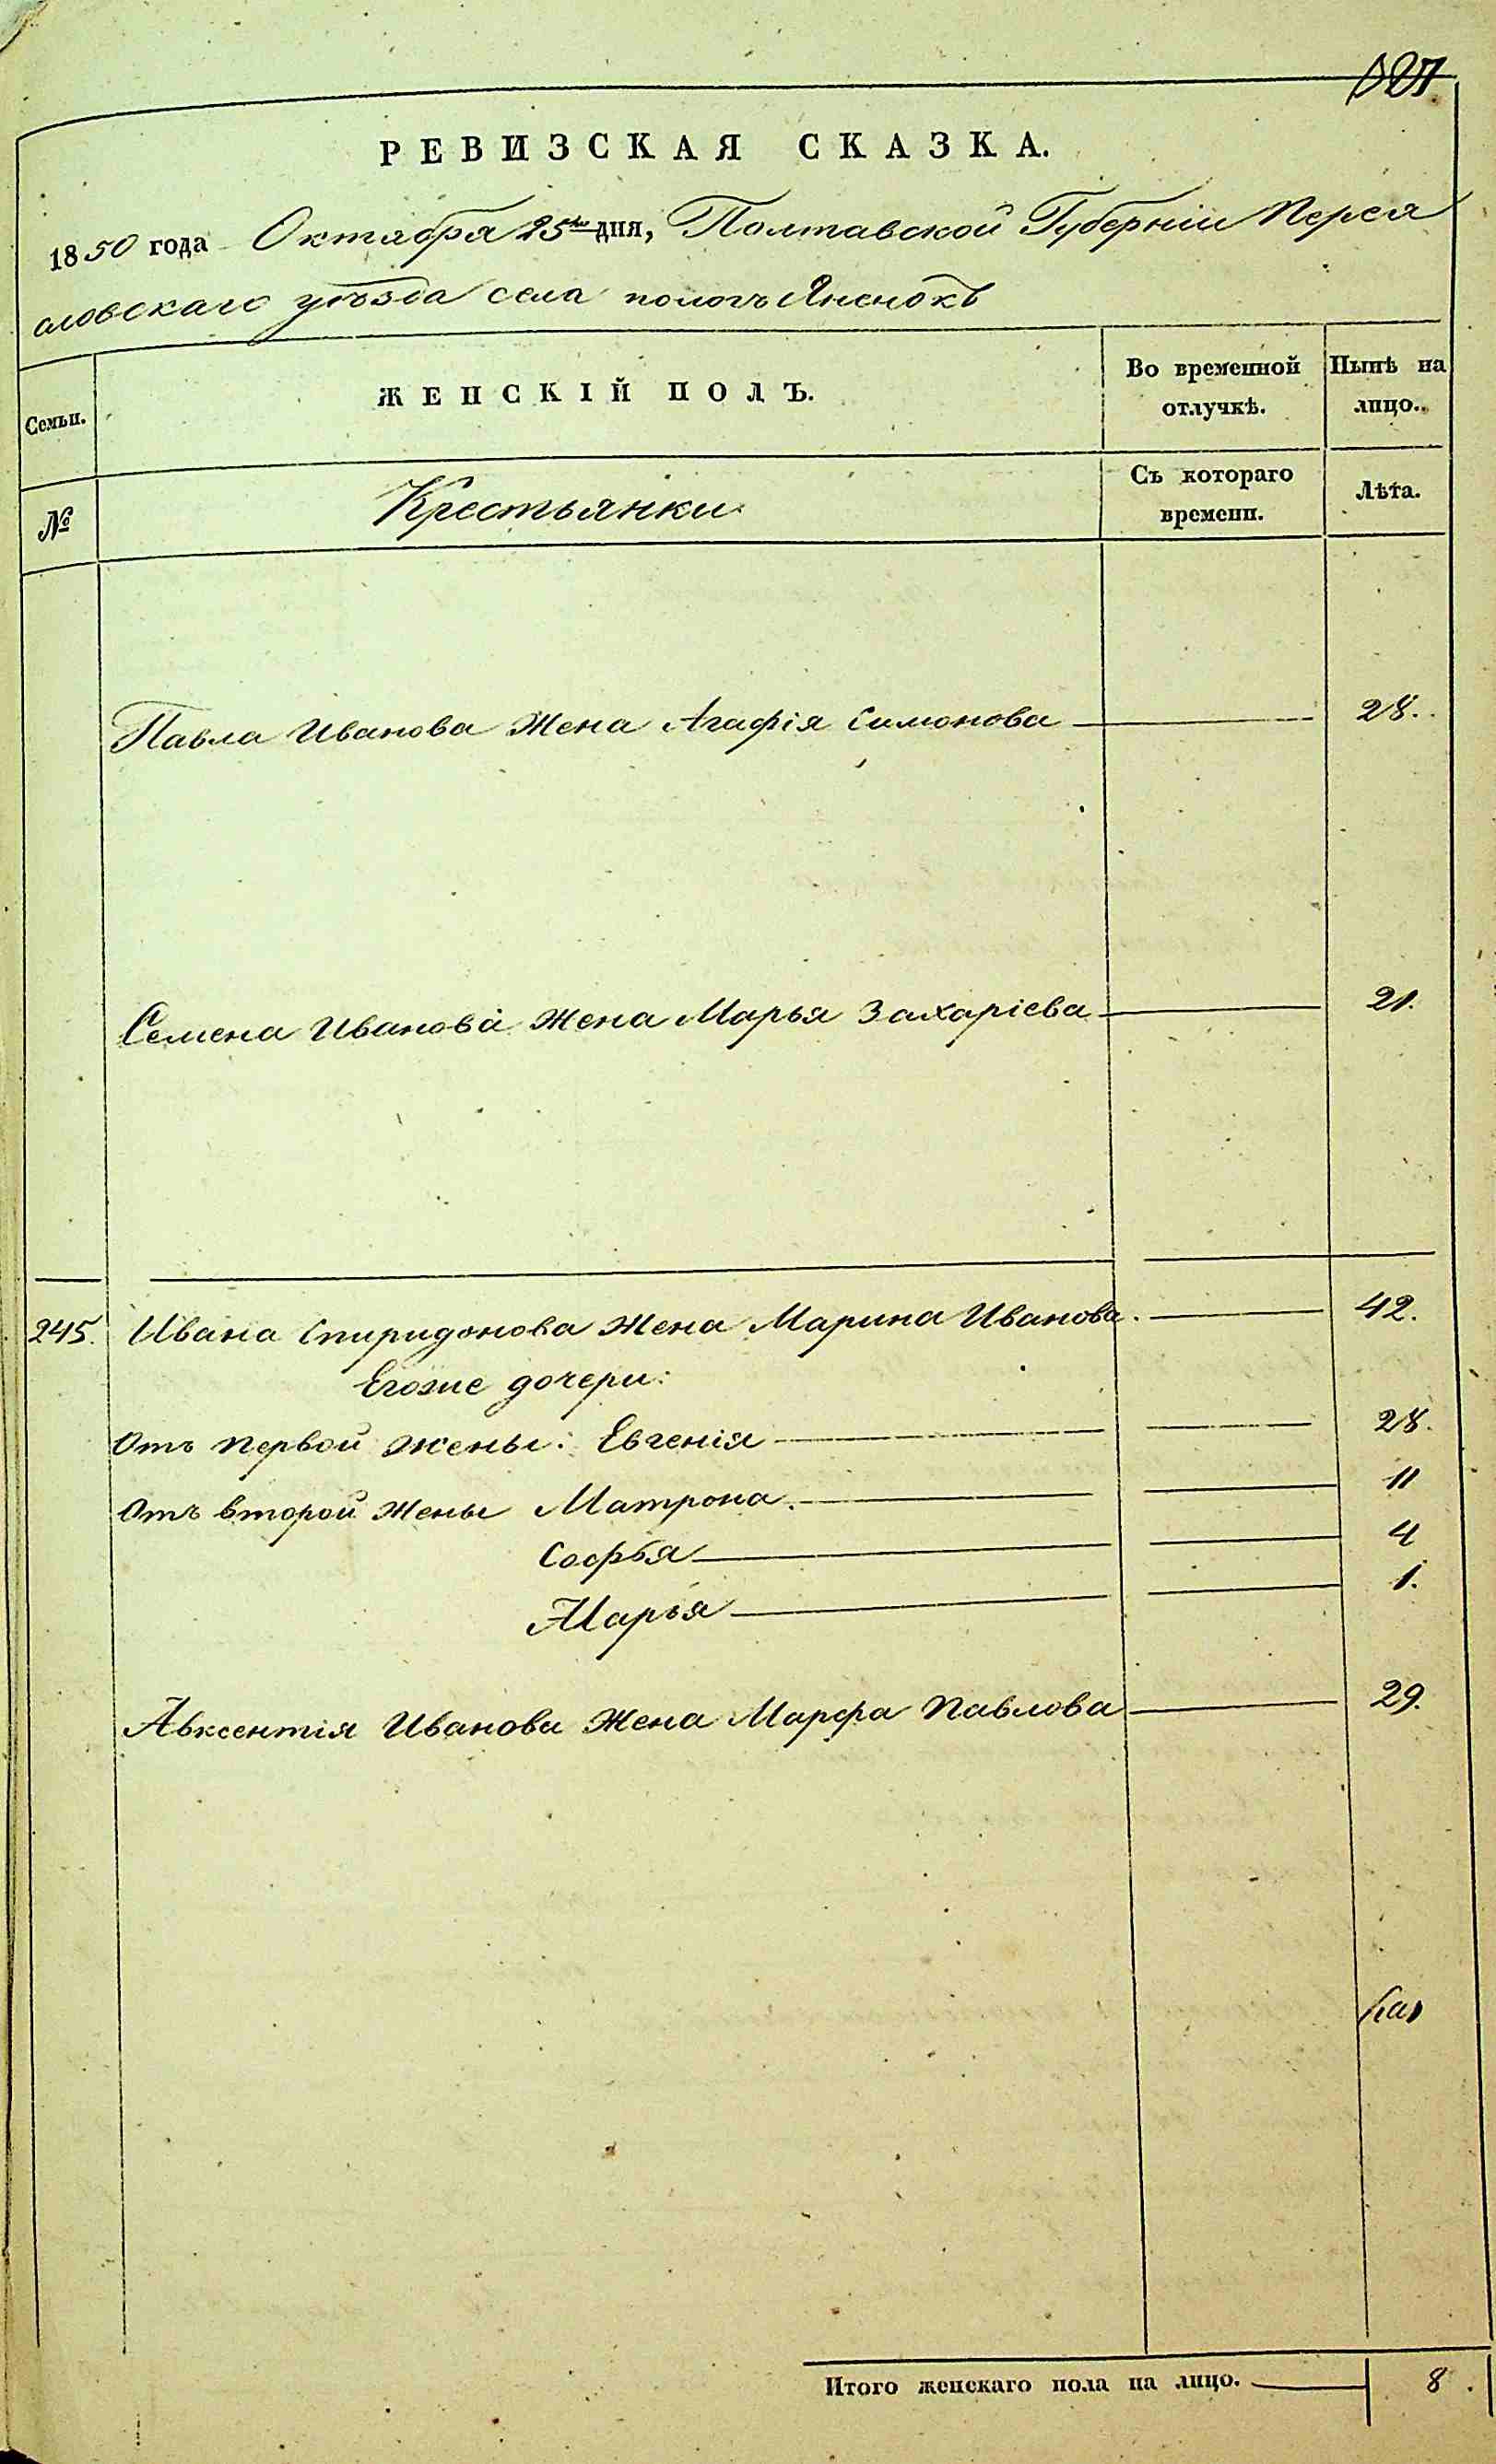 РЕВИЗСКАЯ СКАЗКА.
1850 года Октября 25го дня, Полтавской Губерніи Перея
словскаго уѣзда села пологъ Яненокъ
Семьи.
ЖЕНСКІЙ ПОЛЪ.
Во временной отлучкѣ.
Нынѣ на лицо.
№
Крестьянки
Съ котораго времени.
Лѣта.
Павла Иванова Жена Агафія Симонова 28.
Семена Иванова Жена Марья Захаріева 21.
245. Ивана Спиридонова Жена Марина Иванова. 42.
Егоже дочери:
Отъ первой жены: Евгенія 28.
Отъ второй Жены Матрона. 11
Софья 4
Марья 1.
Авксентія Иванова Жена Марфа Павлова 29.
Итого женскаго пола на лицо. 8.